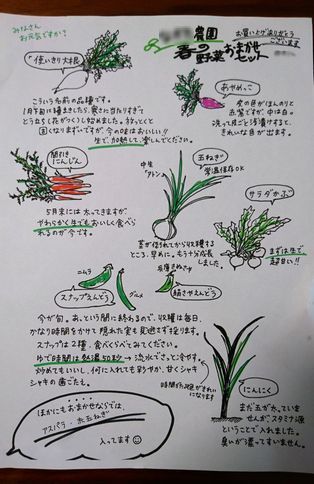 みなさん
お元気ですか?
農園
春の野菜おまかせセット
お買い上げありがとう
ございます
使いきり大根
こういう名前の品種です。
1月下旬に種まきしたら、寒さに当たりすぎて
とうだちしだ(がっくり)し始めました。ほっとくと
固くなりますいですが、今の味はおいしい!!
生で、加熱して、楽しんでください。
あやめっこ
皮の色がほんのりと
赤紫ですが、中は白。
洗って皮ごと浅漬けすると、
きれいな色が出ます。
間引き
にんじん
5月末には太ってきますが、
やわらかく生でもおいしく食べら
れるのが今です。
中生
アトン
玉ねぎ
常温保存OK
茎が倒れてから収穫する
ところ、早めに。もう十分成長
しました。
サラダかぶ
まずは生で。
超甘い!!
ニムラ
グルメ
スナップえんどう
兵庫きぬさや
絹さやえんどう
今が旬。あっという間に終わるので、収穫は毎日、
かなり時間をかけて隠れた実も見逃さず採ります。
スナップは2種、食べくらべてみてください。
ゆで時間は熱湯50秒→流水でさっと冷やす
炒めてもいいし、何に入れても彩やか、甘くシャキ
シャキの歯ごたえ。
にんにく
まだ玉が水っていま
せんが、スタミナ源
ということで入れました。
臭いが漂ってすいません。
ほかにもおまかせならでは、
アスパラ・赤玉ねぎ
入ってます